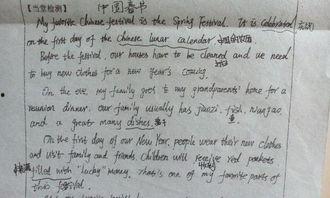 【当堂检测】 中国春节
My favorite Chinese festival is the Spring Festival. It is celebrated
on the first day of the Chinese lunar calendar.
Before the festival, our houses have to be cleaned and we need
to buy new clothes for a new year's coming.
On the eve, my family goes to my grandparents' home for a
reunion dinner. Our family usually has jiaozi, fish, niangao,
and a great many dishes.
On the first day of our New Year, people wear their new clothes
and visit family and friends. Children will receive red pockets
filled with "lucky" money. That's one of my favorite parts of
this festival.